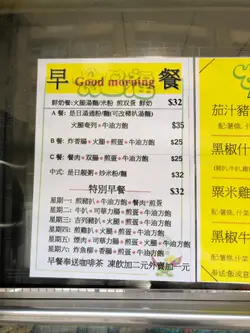 早 晨 餐
Good morning
鮮奶餐:火腿湯麵/米粉 煎双蛋 鮮奶 $32
A 餐: 是日湯通粉/麵(可改豬扒湯麵)
火腿奄列+牛油方飽 $35
B 餐: 炸香腸+火腿+煎蛋+牛油方飽 $25
C 餐: 餐肉+双腸+煎蛋+牛油方飽 $25
中式: 是日靚粥+炒米粉/麵 $32
特別早餐
星期一: 煎豬扒+牛油方飽+餐肉+煎蛋
星期二: 牛扒+可華力腸+煎蛋+牛油方飽
星期三: 吉列豬扒+火腿+煎蛋+牛油方飽
星期四: 煎雞扒+煎蛋+火腿+牛油方飽
星期五: 煙肉+可華力腸+煎蛋+牛油方飽
星期六: 炸魚柳+香腸+煎蛋+牛油方飽
早餐奉送咖啡茶 凍飲加二元外賣加一元
茄汁豬
配:薯條,什
黑椒什
豬扒,牛扒
粟米雞
配:薯條,什菜
黑椒牛